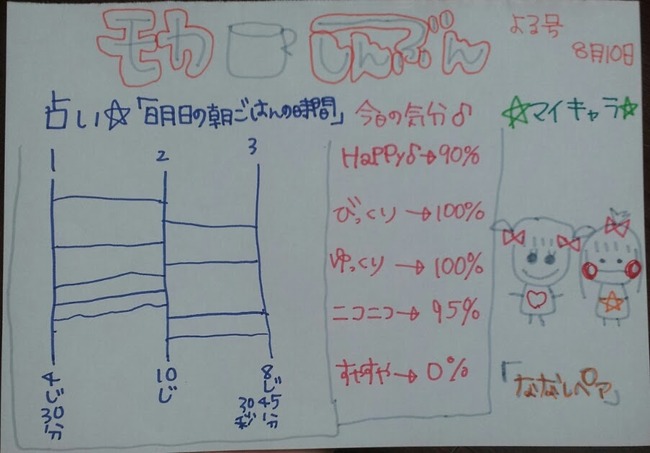 モカ しんぶん
よる号
8月10日
占い☆「明日の朝ごはんの時間」
1 2 3
4じ30分
10じ
8じ45分
今日の気分♪
HaPPy♪→90%
びっくり→100%
ゆっくり→100%
ニコニコ→95%
すやすや→0%
☆マイキャラ☆
「ななしペア」